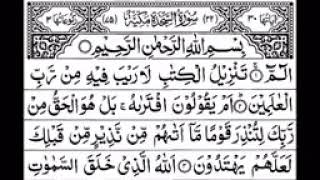 اٰيَاتُهَا ٣٠ (٣٢) سُوْرَةُ السَّجْدَةِ مَكِّيَّةٌ (٧٥) رُكُوْعَاتُهَا ٣
بِسْمِ اللهِ الرَّحْمٰنِ الرَّحِيْمِ
الٓمّٓ ۚ تَنْزِيْلُ الْكِتٰبِ لَا رَيْبَ فِيْهِ مِنْ رَّبِّ
الْعٰلَمِيْنَ ؕ اَمْ يَقُوْلُوْنَ افْتَرٰىهُ ۚ بَلْ هُوَ الْحَقُّ مِنْ
رَّبِّكَ لِتُنْذِرَ قَوْمًا مَّاۤ اَتٰىهُمْ مِّنْ نَّذِيْرٍ مِّنْ قَبْلِكَ
لَعَلَّهُمْ يَهْتَدُوْنَ ۝ اَللهُ الَّذِيْ خَلَقَ السَّمٰوٰتِ